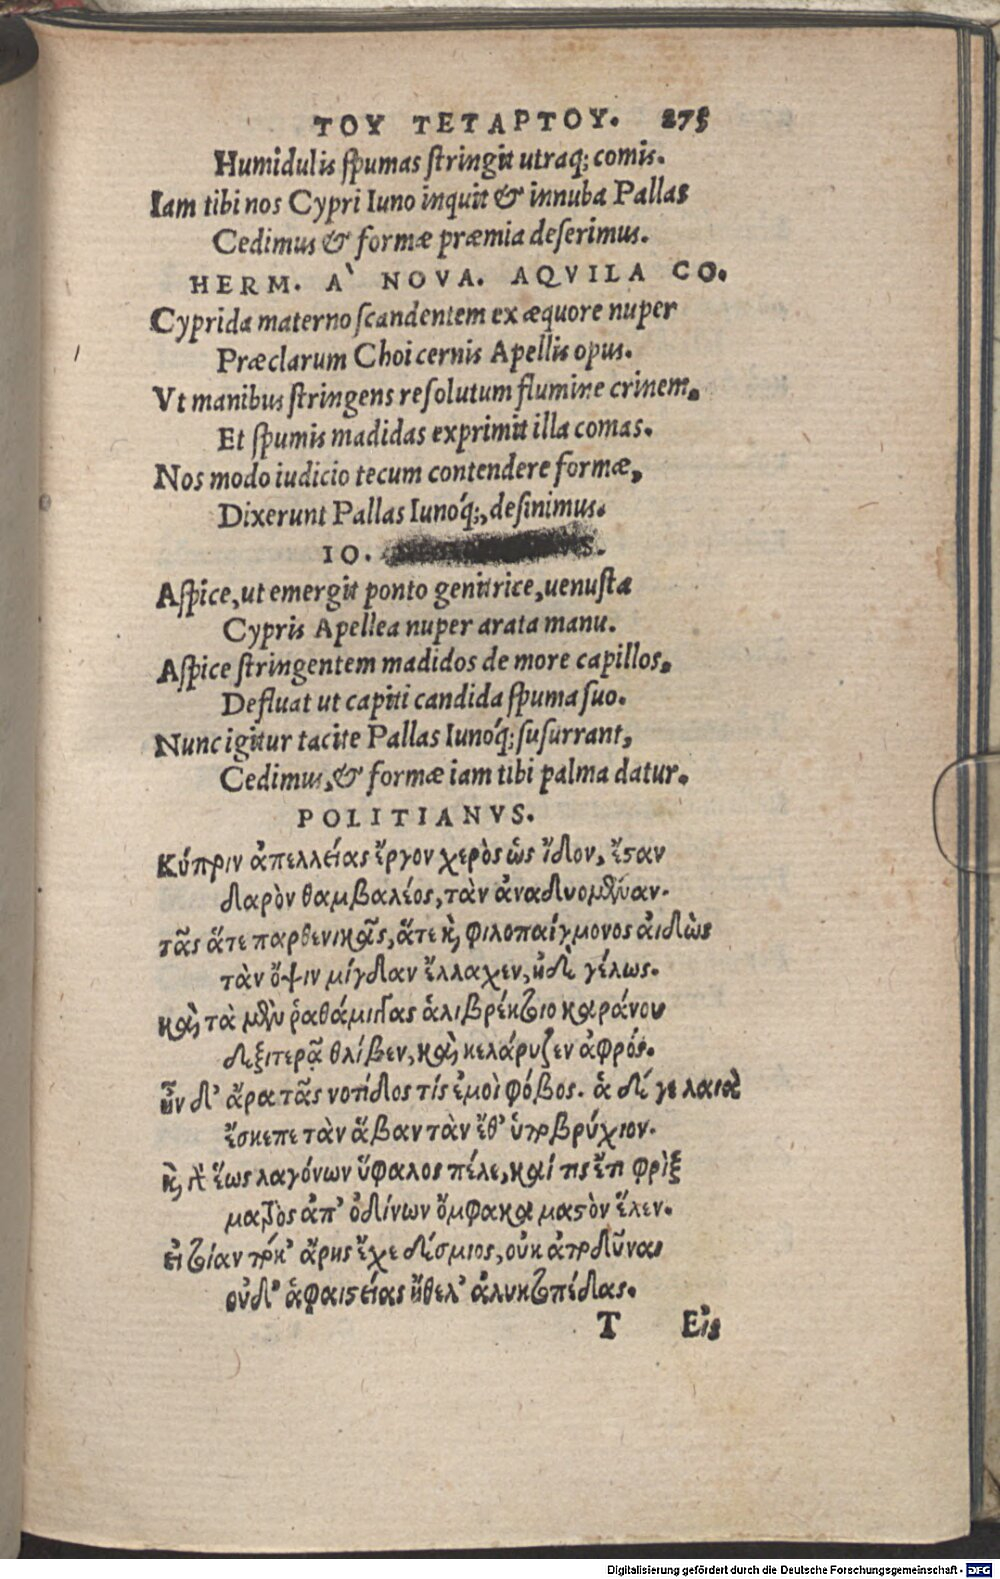 ΤΟΥ ΤΕΤΑΡΤΟΥ. 275
Humidulis spumas stringit utraq; comis.
Iam tibi nos Cypri Iuno inquit & innuba Pallas
Cedimus & formæ præmia deserimus.
HERM. A` NOVA. AQVILA CO.
Cyprida materno scandentem ex æquore nuper
Præclarum Choi cernis Apellis opus.
Vt manibus stringens resolutum flumine crinem,
Et spumis madidas exprimit illa comas.
Nos modo iudicio tecum contendere formæ,
Dixerunt Pallas Iunóq;, desinimus.
IO.
Aspice, ut emergit ponto genitrice, uenusta
Cypris Apellea nuper arata manu.
Aspice stringentem madidos de more capillos,
Defluat ut capiti candida spuma suo.
Nunc igitur tacite Pallas Iunóq; susurrant,
Cedimus, & formæ iam tibi palma datur.
POLITIANVS.
Κύπριν ἀπελλείας ἔργον χερὸς ὡς ἴδον, ἔσταν
δαρὸν θαμβαλέος, τὰν ἀναδυομέναν.
τᾶς ἅτε παρθενικᾶς, ἅτε καὶ φιλοπαίγμονος αἰδὼς
τὰν ὄψιν μίγδαν ἔλλαχεν, ἠδὲ γέλως.
καὶ τὰ μὲν ῥαθάμιγγας ἁλιβρέκτοιο καράνου
δεξιτερᾷ θλίβεν, καὶ κελάρυζεν ἀφρός.
ἦν δ' ἄρα τᾶς νοτίδος τὶς ἐμοὶ φόβος. ἁ δέ γε λαιὰ
ἔσκεπε τὰν ἅβαν τὰν ἔθ' ὑποβρύχιον.
καὶ ἕως λαγόνων ὕφαλος πέλε, καί τις ἔτι φρὶξ
ματρὸς ἀπ' ὀδίνων ὄμφακα μαστὸν ἕλεν.
εἰ τοίαν ποκ' ἄρης ἔχε δέσμιος, οὐκ ἀποδῦναι
οὐδ' ἁφαιστείας ἤθελ' ἀλυκτοπέδας.
T Εἰς
Digitalisierung gefördert durch die Deutsche Forschungsgemeinschaft - DFG